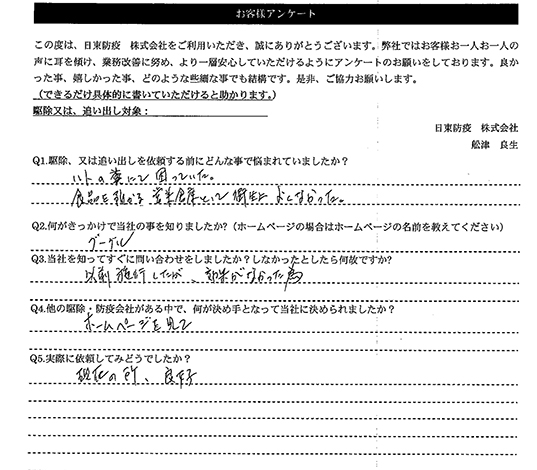 お客様アンケート
この度は、日東防疫 株式会社をご利用いただき、誠にありがとうございます。弊社ではお客様お一人お一人の
声に耳を傾け、業務改善に努め、より一層安心していただけるようにアンケートのお願いをしております。良かっ
た事、嬉しかった事、どのような些細な事でも結構です。是非、ご協力お願いします。
(できるだけ具体的に書いていただけると助かります。)
駆除又は、追い出し対象：
日東防疫 株式会社
舩津 良生
Q1.駆除、又は追い出しを依頼する前にどんな事で悩まれていましたか？
ハトの糞にて困っていた。
食品を扱かう営業倉庫として衛生によくなかった。
Q2.何がきっかけで当社の事を知りましたか？(ホームページの場合はホームページの名前を教えてください)
グーグル
Q3.当社を知ってすぐに問い合わせをしましたか？しなかったとしたら何故ですか？
以前施行したが、効果がなかった為
Q4.他の駆除・防疫会社がある中で、何が決め手となって当社に決められましたか？
ホームページを見て
Q5.実際に依頼してみどうでしたか？
現在の所、良好